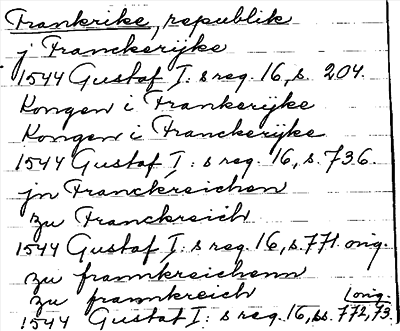 Frankrike, republik
j Franckerijke
1544 Gustaf I: s reg. 16, s. 204.
Kongen i Frankerijke
Kongen i Franckerijke
1544 Gustaf I: s reg. 16, s. 736.
jn Franckreichen
zu Franckreich
1544 Gustaf I: s reg. 16, s. 771. orig.
zu frannkreichenn
zu frannkreich
1544 Gustaf I: s reg. 16, ss. 772,73. orig.